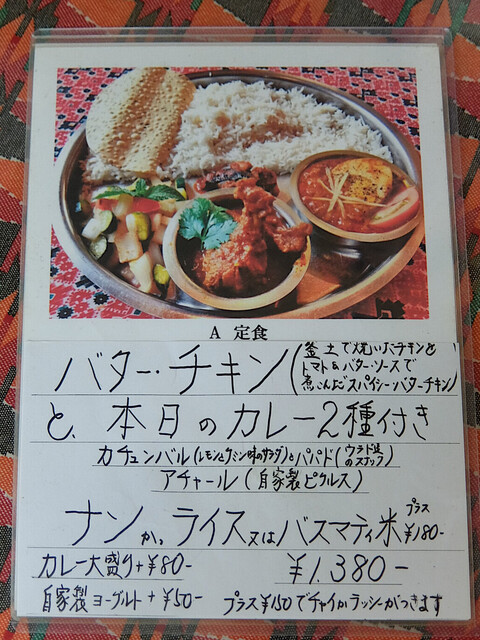 A 定食
バター・チキン(釜土で焼いたチキンと
トマト&バター・ソースで
煮こんだスパイシーバターチキン)
と、本日のカレー2種付き
カチュンバル(レモンとクミン味のサラダ)とパパド(ウラド豆のスナック)
アチャール(自家製ピクルス)
ナンか、ライス又はバスマティ米プラス¥180-
カレー大盛り+¥80- ¥1.380-
自家製ヨーグルト+¥50- プラス¥150でチャイかラッシーがつきます